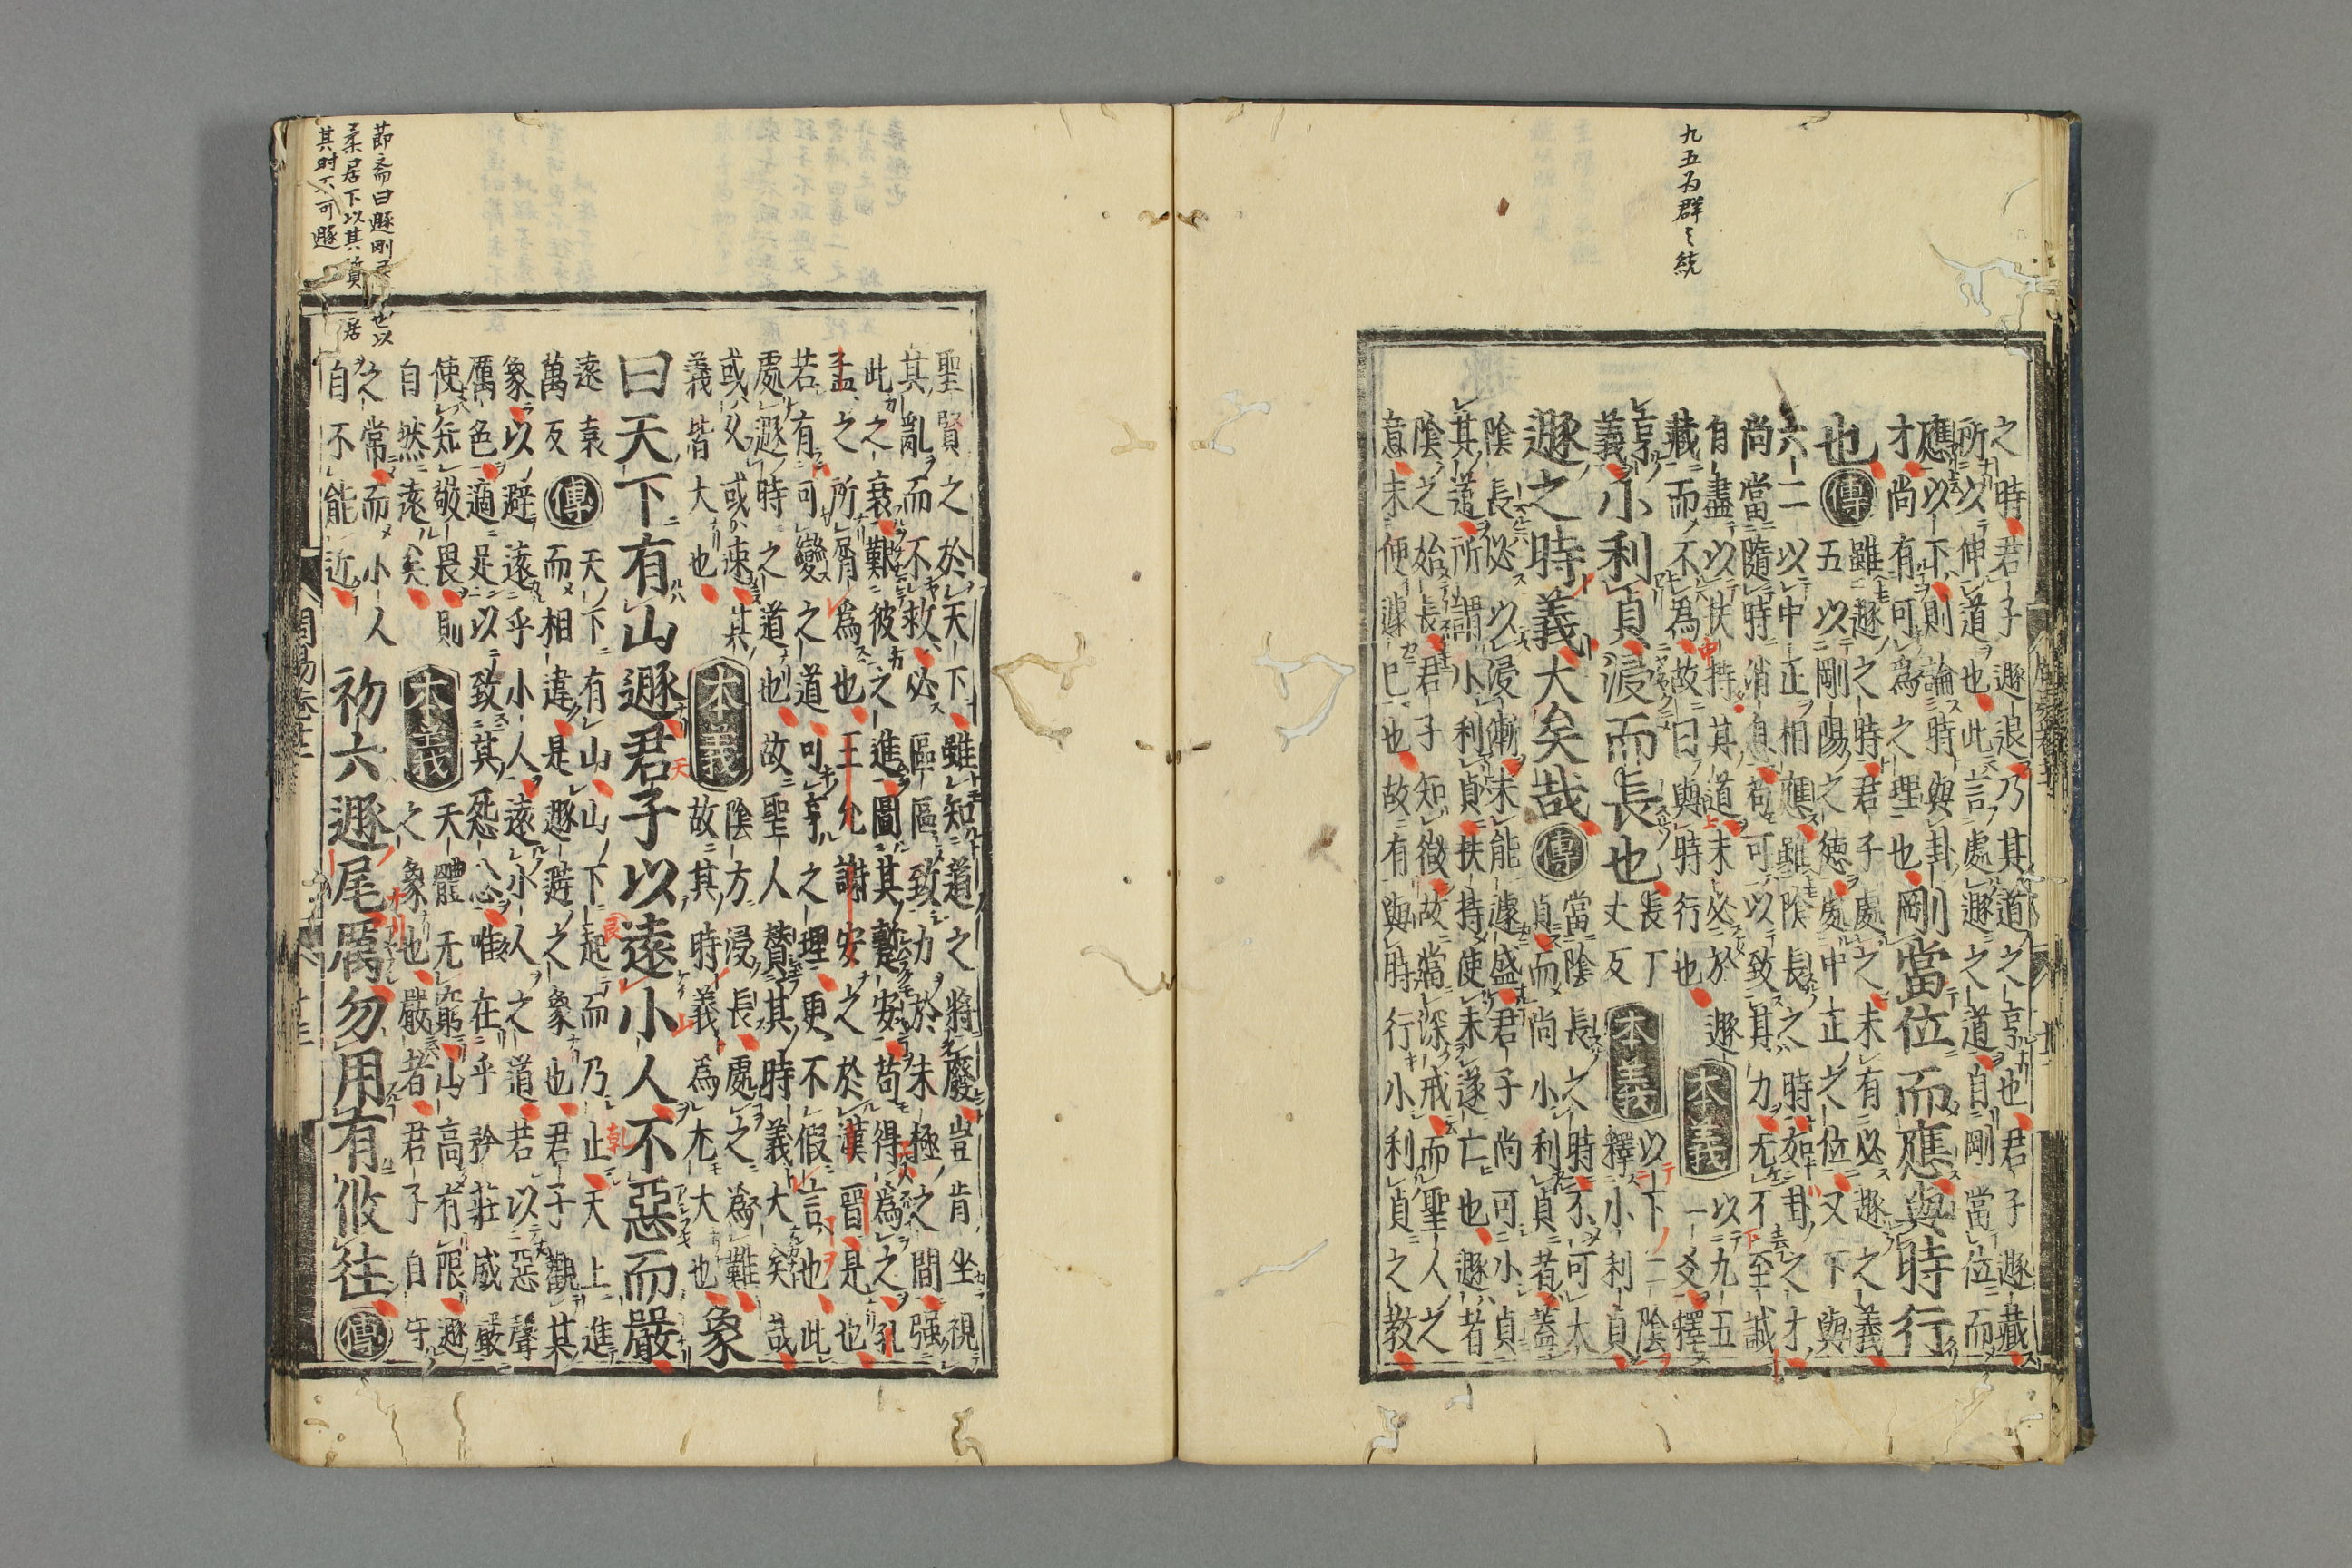 九五為群〻統
之時君子遯退乃其道之亨也君子遯藏
所以伸道也此言處遯之道自剛當位而
應以下則論時與卦
才尚有可爲之理也
剛當位而應與時行
也
傳
雖遯之時君子處之未有必遯之義
五以剛陽之德處中正之位又下與
六二以中正相應雖陰長之時如卦之才
尚當隨時消息苟可以致其力无不至誠
自盡以扶持其道未必於遯
藏而不爲故曰與時行也
本義
以九五
一爻釋
亨
義
小利貞浸而長也
長丁
丈反
本義
以下二陰
釋小利貞
遯之時義大矣哉
傳
當陰長之時不可大
貞而尚小利貞者蓋
陰長必以浸漸未能遽盛君子尚可小貞
其道所謂小利貞扶持使未遂亡也遯者
陰之始長君子知微故當深戒而聖人之
意未便遽已也故有與時行小利貞之教
聖賢之於天下雖知道之將廢豈肯坐視
其亂而不救必區區致力於未極之間强
此之衰艱彼之進圖其暫安苟得爲之孔
孟之所屑爲也王允謝安之於漢晉是也
若有可變之道可亨之理更不假言也此
處遯時之道也故聖人贊其時義大矣哉
或久或速其
義皆大也
本義
陰方浸長處之爲難
故其時義爲尤大也
象
曰天下有山遯君子以遠小人不惡而嚴
遠袁
萬反
傳
天下有山山下起而乃止天上進
而相違是遯避之象也君子觀其
象以避遠乎小人遠小人之道若以惡聲
厲色適足以致其怨忿唯在乎矜莊威嚴
使知敬畏則
自然遠矣
本義
天體无窮山高有限遯
之象也嚴者君子自守
之常而小人
自不能近
初六遯尾厲勿用有攸往
傳
節斎曰遯剛也以
柔居下以其質居
其时不可遯